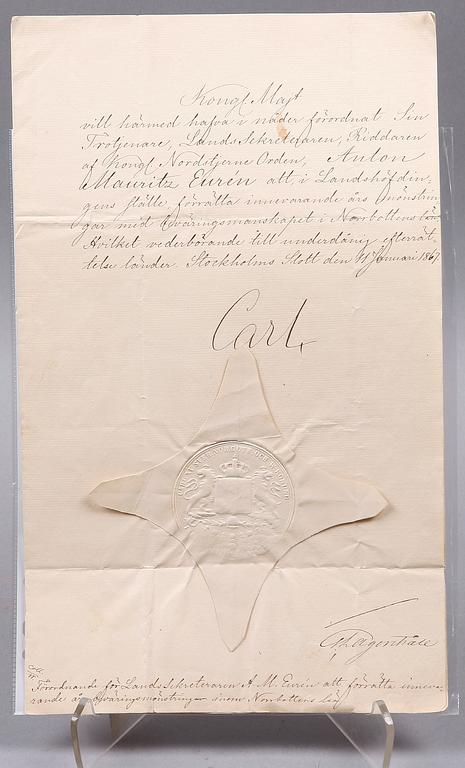 Kongl Majt
vill härmed hafva i nåder förordnat Sin
Trotjenare, LandsSekreteraren, Riddaren
af Kongl Nordstjerne Orden, Anton
Mauritz Eurén att, i Landshöfdin-
gens ställe, förrätta innevarande års mönstrin-
gar med Beväringsmanskapet i Norrbottens län,
Hvilket vederbörande till underdånig efterrät-
telse länder. Stockholms Slott den 11 Januari 1867.
Carl
Förordnande för LandsSekreteraren A. M. Eurén att förrätta inneva-
rande års Beväringsmönstring inom Norrbottens län